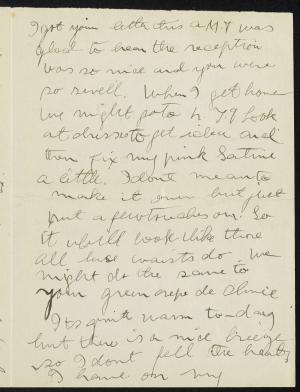 I got your letter this A.M. & was
glad to hear the reception
was so nice and you were
so swell. When I get home
we might go to N.Y. & look
at dresses to get ideas and
then fix my pink Satine
a little. I dont mean to
make it over but just
put a few touches on. So
it would look like there
all lace waists do. We
might do the same to
your green crepe de chine
Its quite warm to-day
but there is a nice breeze
so I dont fell the heat
I have on my